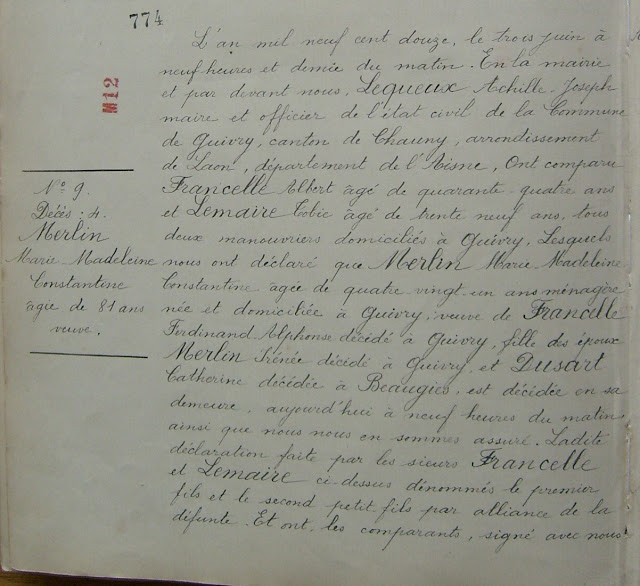 774
M12
N° 9.
Décès : 4.
Merlin
Marie Madeleine
Constantine
âgée de 81 ans
veuve.
L'an mil neuf cent douze, le trois juin à
neuf heures et demie du matin. En la mairie
et par devant nous, Lequeux Achille Joseph
maire et officier de l'état civil de la Commune
de Guivry, canton de Chauny, arrondissement
de Laon, département de l'Aisne, Ont comparu
Francelle Albert âgé de quarante-quatre ans
et Lemaire âgé de trente neuf ans, tous
deux manouvriers domiciliés à Guivry, Lesquels
nous ont déclaré que Merlin Marie Madeleine
Constantine âgée de quatre vingt-un ans ménagère
née et domiciliée à Guivry, veuve de Francelle
Ferdinand Alphonse décédé à Guivry, fille des époux
Merlin Irénée décédé à Guivry, et Dusart
Catherine décédée à Beaugies, est décédée en sa
demeure, aujourd'hui à neuf heures du matin
ainsi que nous nous en sommes assuré. Ladite
déclaration faite par les sieurs Francelle
et Lemaire ci-dessus dénommés le premier
fils et le second petit-fils par alliance de la
défunte. Et ont, les comparants, signé avec nous